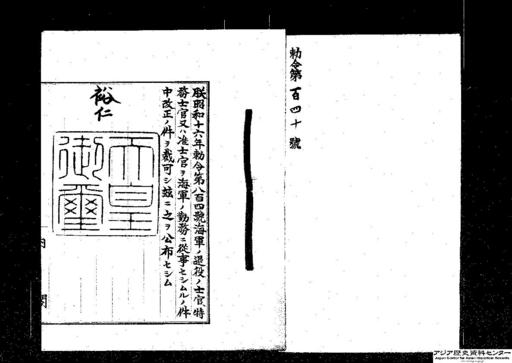 勅令第百四十號
朕昭和十六年勅令第八百四號海軍ノ退役ノ士官特
務士官又ハ准士官ヲ海軍ノ勤務ニ從事セシムルノ件
中改正ノ件ヲ裁可シ玆ニ之ヲ公布セシム
裕仁
天皇
御璽
内閣
アジア歴史資料センター
Japan Center for Asian Historical Records